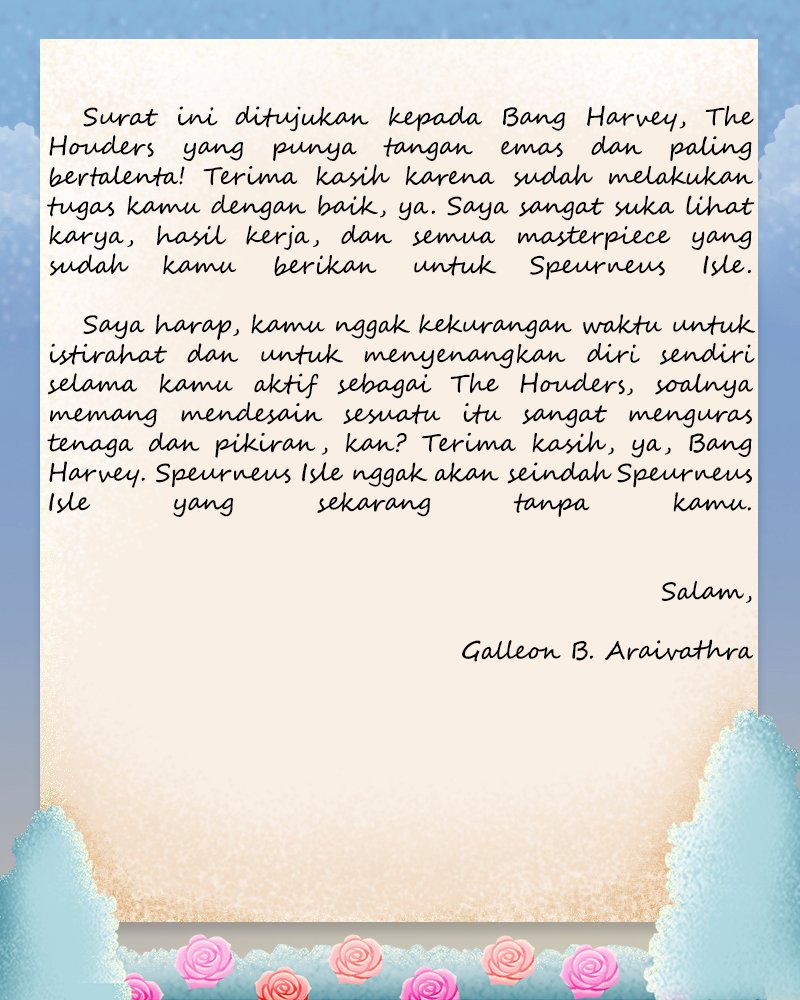 Surat ini ditujukan kepada Bang Harvey, The
Houders yang punya tangan emas dan paling
bertalenta! Terima kasih karena sudah melakukan
tugas kamu dengan baik, ya. Saya sangat suka lihat
karya, hasil kerja, dan semua masterpiece yang
sudah kamu berikan untuk Speurneus Isle.
Saya harap, kamu nggak kekurangan waktu untuk
istirahat dan untuk menyenangkan diri sendiri
selama kamu aktif sebagai The Houders, soalnya
memang mendesain sesuatu itu sangat menguras
tenaga dan pikiran, kan? Terima kasih, ya, Bang
Harvey. Speurneus Isle nggak akan seindah Speurneus
Isle yang sekarang tanpa kamu.
Salam,
Galleon B. Araivathra